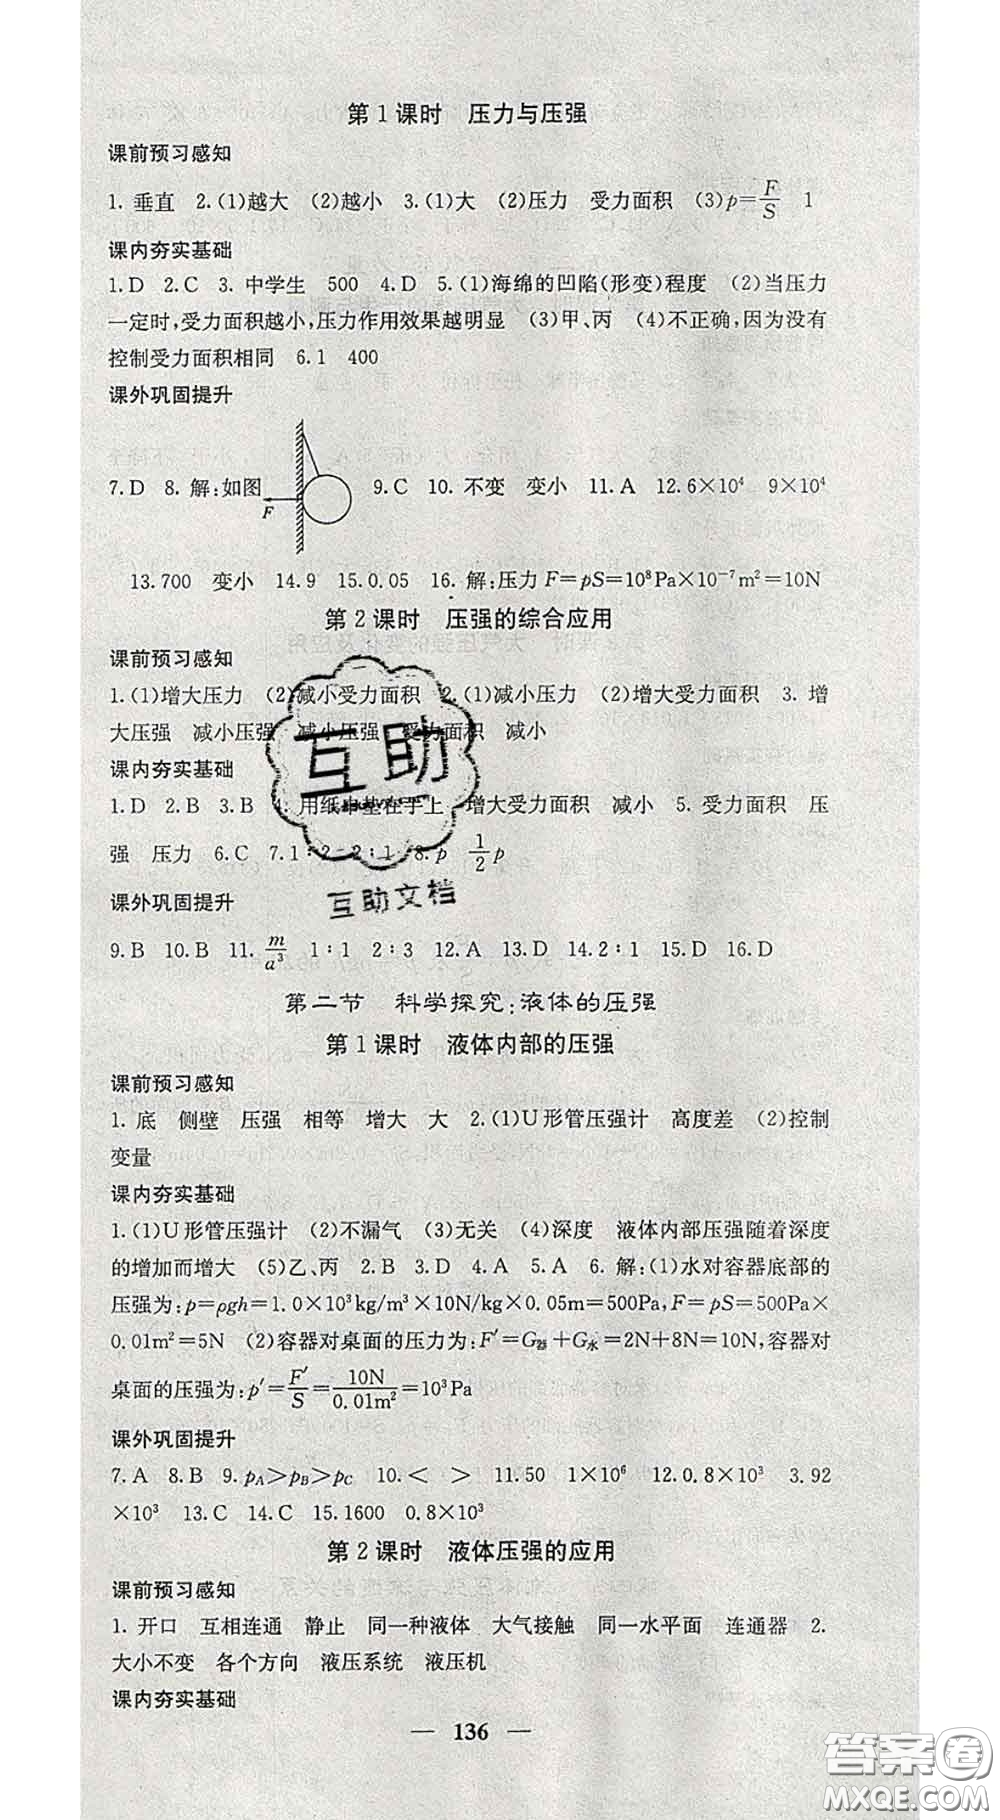 第1课时　压力与压强
课前预习感知
1. 垂直　2.(1)越大　(2)越小　3.(1)大　(2)压力　受力面积　(3)p=F/S　1
课内夯实基础
1.D　2.C　3. 中学生　500　4.D　5.(1)海绵的凹陷(形变)程度　(2)当压力
一定时,受力面积越小,压力作用效果越明显　(3)甲、丙　(4)不正确,因为没有
控制受力面积相同　6.1　400
课外巩固提升
7.D　8. 解:如图　F　9.C　10. 不变　变小　11.A　12.6×10⁴　9×10⁴
13.700　变小　14.9　15.0.05　16. 解:压力 F=pS=10⁸Pa×10⁻⁷m²=10N
第2课时　压强的综合应用
课前预习感知
1.(1)增大压力　(2)减小受力面积　2.(1)减小压力　(2)增大受力面积　3. 增
大压强　减小压强　减小压强　受力面积　减小
课内夯实基础
1.D　2.B　3.B　4. 用纸巾垫在手上　增大受力面积　减小　5. 受力面积　压
强　压力　6.C　7.1∶2　2∶1　8.p　1/2 p
互助
互助文档
课外巩固提升
9.B　10.B　11. m/a³　1∶1　2∶3　12.A　13.D　14.2∶1　15.D　16.D
第二节　科学探究:液体的压强
第1课时　液体内部的压强
课前预习感知
1. 底　侧壁　压强　相等　增大　大　2.(1)U形管压强计　高度差　(2)控制
变量
课内夯实基础
1.(1)U形管压强计　(2)不漏气　(3)无关　(4)深度　液体内部压强随着深度
的增加而增大　(5)乙、丙　2.B　3.D　4.A　5.A　6. 解:(1)水对容器底部的
压强为:p=ρgh=1.0×10³kg/m³×10N/kg×0.05m=500Pa,F=pS=500Pa×
0.01m²=5N　(2)容器对桌面的压力为:F′=G器+G水=2N+8N=10N,容器对
桌面的压强为:p′=F′/S=10N/0.01m²=10³Pa
课外巩固提升
7.A　8.B　9.pA>pB>pC　10.<　>　11.50　1×10⁶　12.0.8×10³　3.92
×10³　13.C　14.C　15.1600　0.8×10³
第2课时　液体压强的应用
课前预习感知
1. 开口　互相连通　静止　同一种液体　大气接触　同一水平面　连通器　2.
大小不变　各个方向　液压系统　液压机
课内夯实基础
— 136 —
答案圈
MXQE.COM